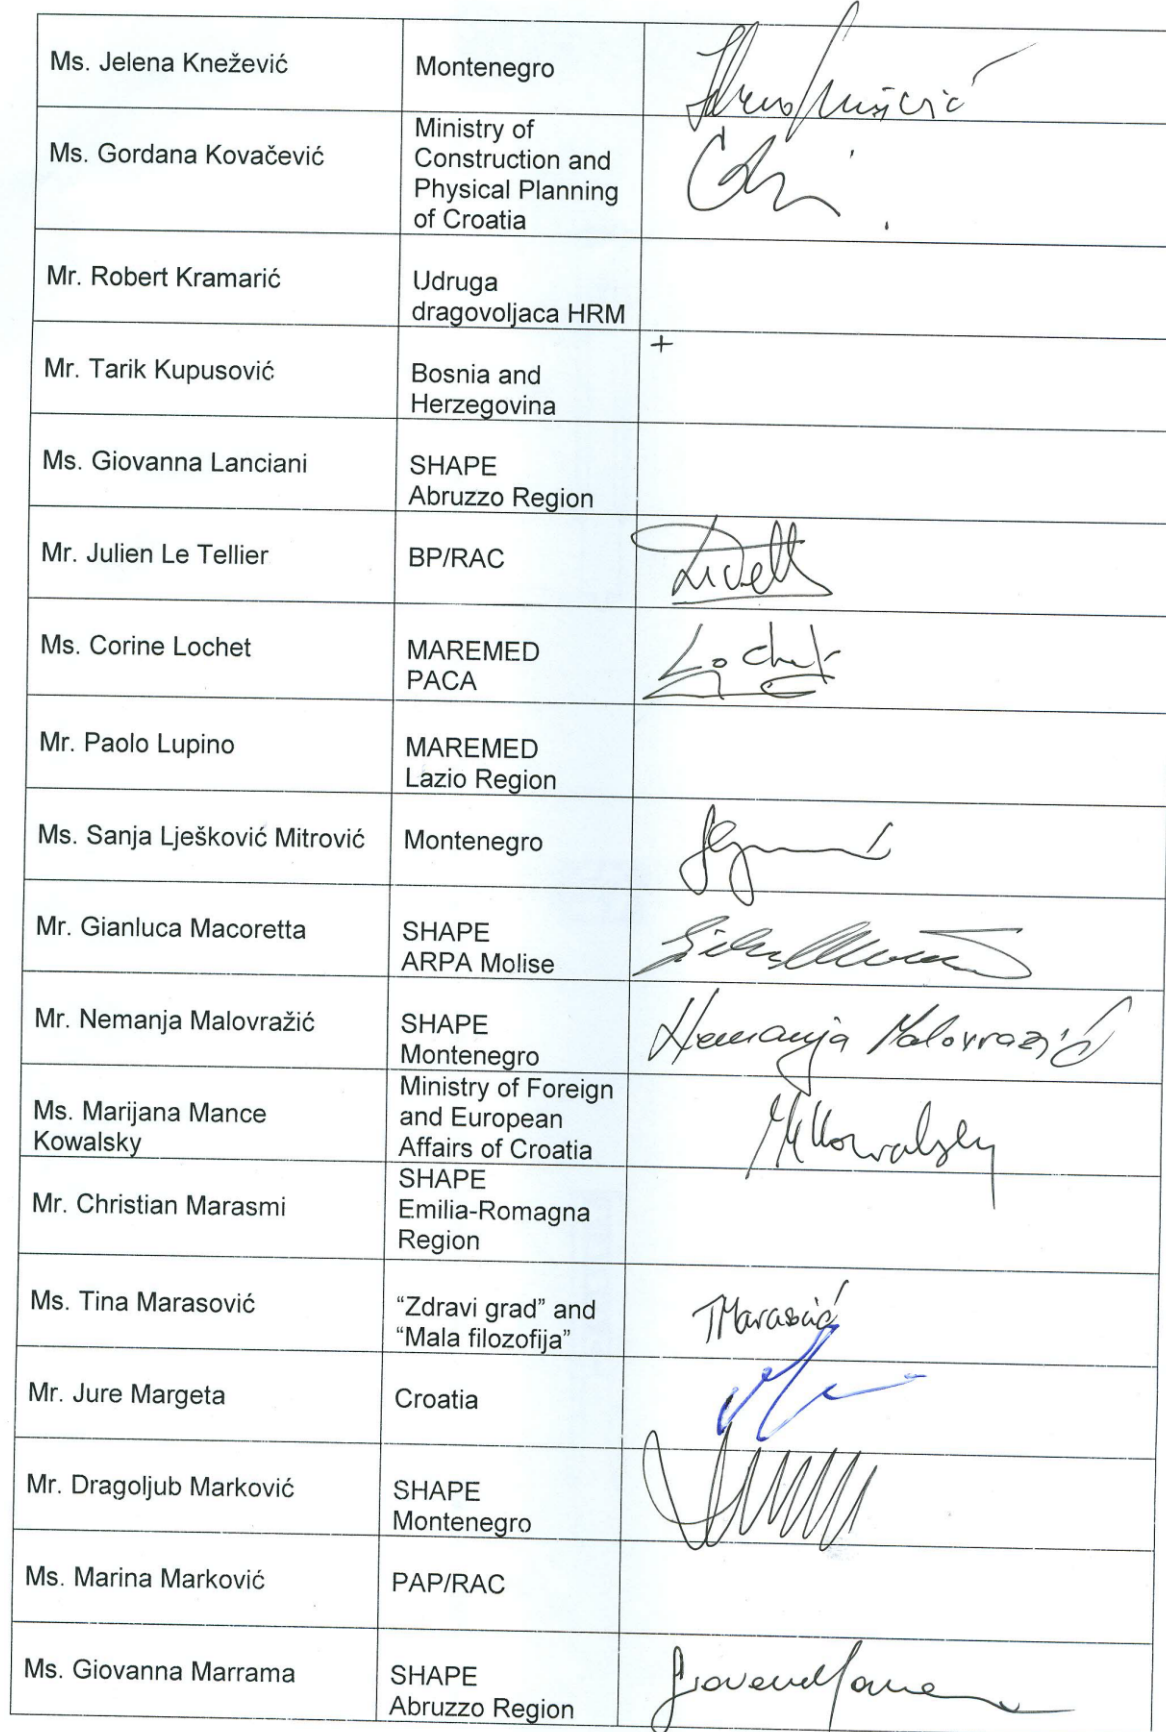 Ms. Jelena Knežević
Montenegro
Ms. Gordana Kovačević
Ministry of
Construction and
Physical Planning
of Croatia
Mr. Robert Kramarić
Udruga
dragovoljaca HRM
Mr. Tarik Kupusović
Bosnia and
Herzegovina
+
Ms. Giovanna Lanciani
SHAPE
Abruzzo Region
Mr. Julien Le Tellier
BP/RAC
Ms. Corine Lochet
MAREMED
PACA
Lochet
Mr. Paolo Lupino
MAREMED
Lazio Region
Ms. Sanja Lješković Mitrović
Montenegro
Mr. Gianluca Macoretta
SHAPE
ARPA Molise
Mr. Nemanja Malovražić
SHAPE
Montenegro
Nemanja Malovražić
Ms. Marijana Mance
Kowalsky
Ministry of Foreign
and European
Affairs of Croatia
MMKowalsky
Mr. Christian Marasmi
SHAPE
Emilia-Romagna
Region
Ms. Tina Marasović
“Zdravi grad” and
“Mala filozofija”
Mr. Jure Margeta
Croatia
Mr. Dragoljub Marković
SHAPE
Montenegro
Ms. Marina Marković
PAP/RAC
Ms. Giovanna Marrama
SHAPE
Abruzzo Region